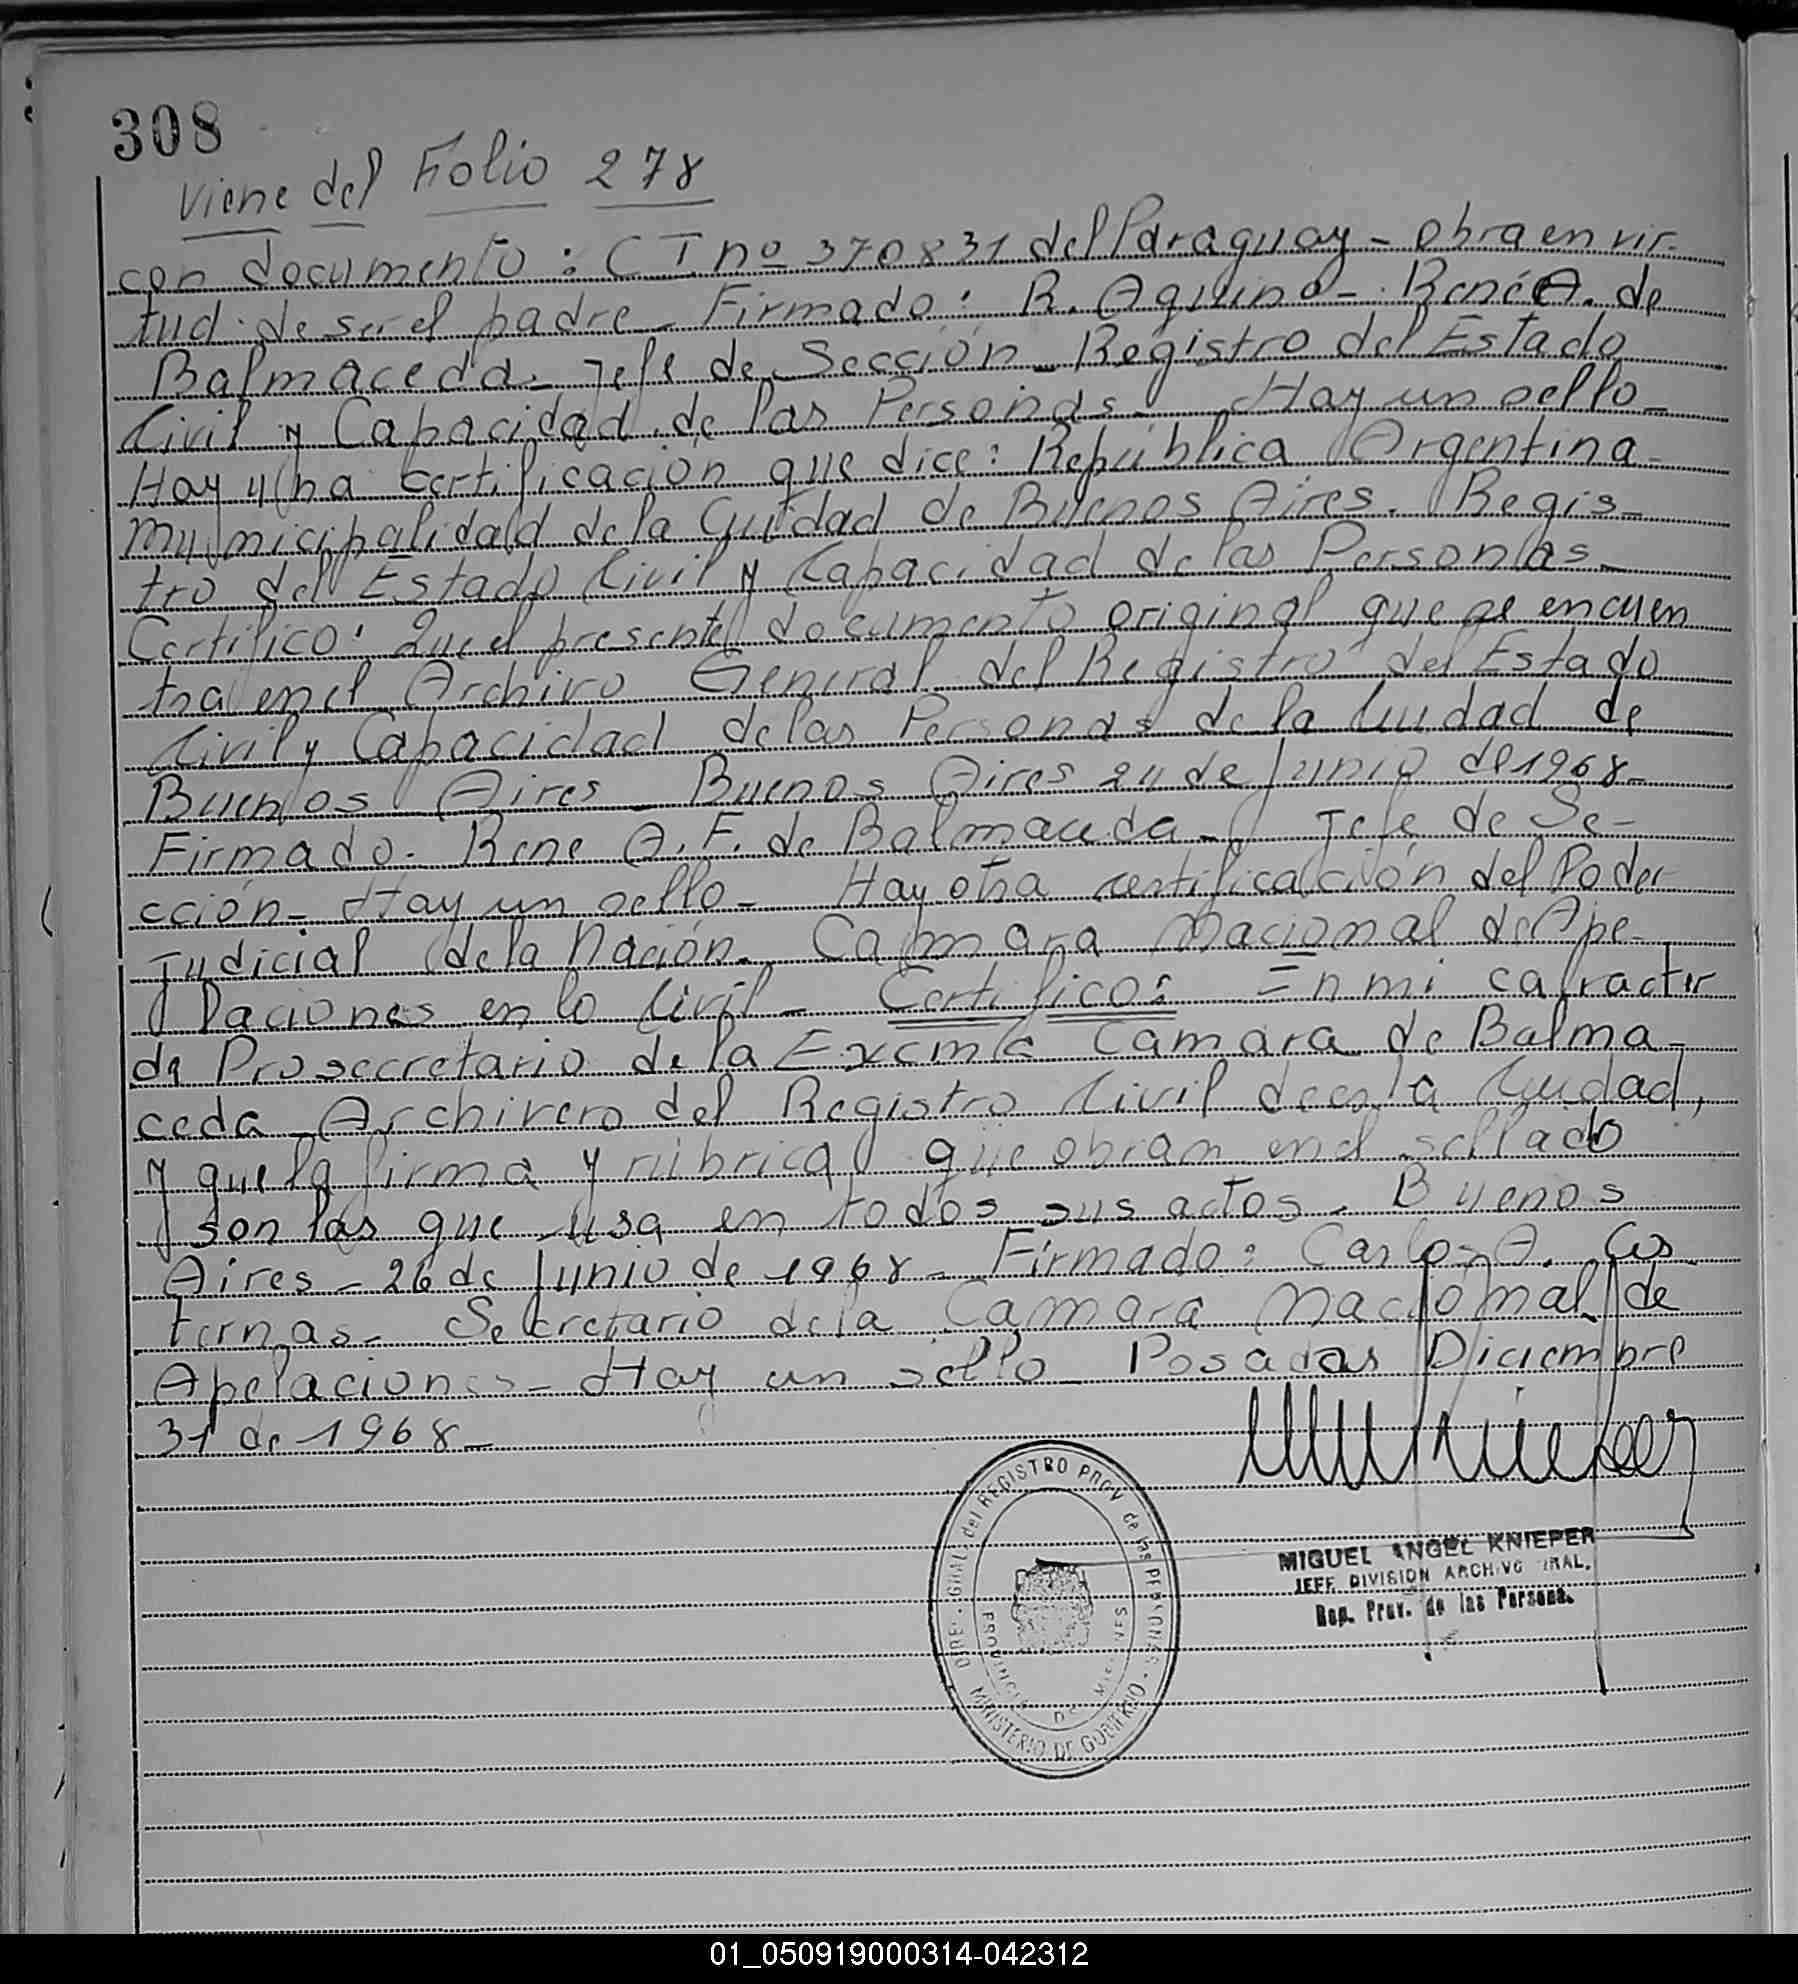 308
Viene del Folio 278
con documento: CI nº 370831 del Paraguay - obra en vir-
tud de ser el padre - Firmado: R. Aquino - René A. de
Balmaceda - Jefe de Sección - Registro del Estado
Civil y Capacidad de las Personas - Hay un sello -
Hay una certificación que dice: República Argentina -
Municipalidad de la Ciudad de Buenos Aires. Regis-
tro del Estado Civil y Capacidad de las Personas -
Certifico: Que el presente documento original que se encuen
tra en el Archivo General del Registro del Estado
Civil y Capacidad de las Personas de la Ciudad de
Buenos Aires - Buenos Aires 24 de Junio de 1968 -
Firmado. Rene A. F. de Balmaceda - Jefe de Se-
cción - Hay un sello - Hay otra certificación del Poder
Judicial de la Nación. Camara Nacional de Ape-
laciones en lo Civil - Certifico: En mi caracter
de Prosecretario de la Exema Camara de Balma-
ceda Archivero del Registro Civil de esta Ciudad,
y que la firma y rúbrica que obran en el sellado
son las que usa en todos sus actos. Buenos
Aires - 26 de Junio de 1968 - Firmado: Carlos A. Cas
ternas - Secretario de la Camara Nacional de
Apelaciones - Hay un sello - Posadas Diciembre
31 de 1968 -
DIREC. GRAL. del REGISTRO PROV de las PERSONAS
PROVINCIA DE MISIONES
MINISTERIO DE GOBIERNO
MIGUEL ANGEL KNIEPER
JEFE DIVISION ARCHIVO GRAL.
Rep. Prov. de las Persona.
01_050919000314-042312